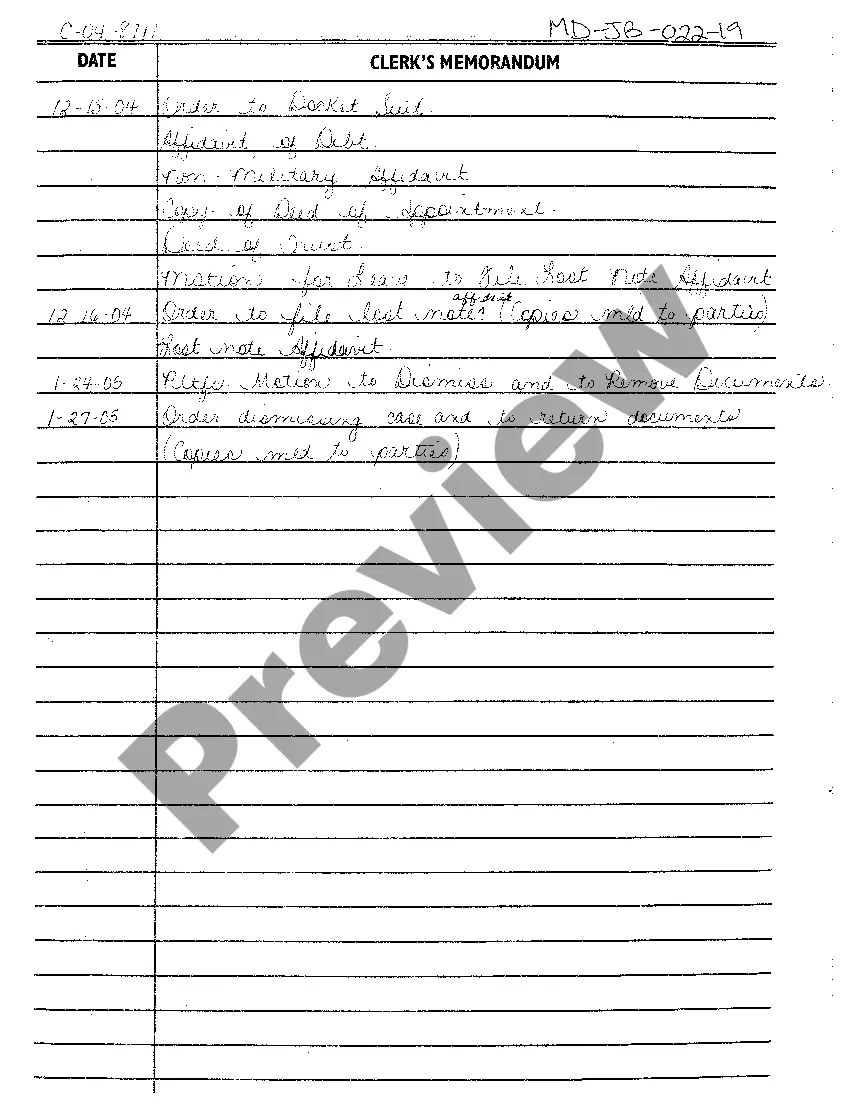 C-04-8711 MD-JB-022-19
DATE CLERK'S MEMORANDUM
12-15-04 Order to Docket Suit.
Affidavit of Debt.
Non-Military Affidavit
Copy of Deed of Appointment.
Deed of Trust.
Motion for Leave to File Lost Note Affidavit
affidavit
12-16-04 Order to file lost note. (Copies mld to parties)
Lost note Affidavit.
1-24-05 Pltfs. Motion to Dismiss and to Remove Documents.
1-27-05 Order dismissing case and to return documents
(Copies mld to parties)
Preview